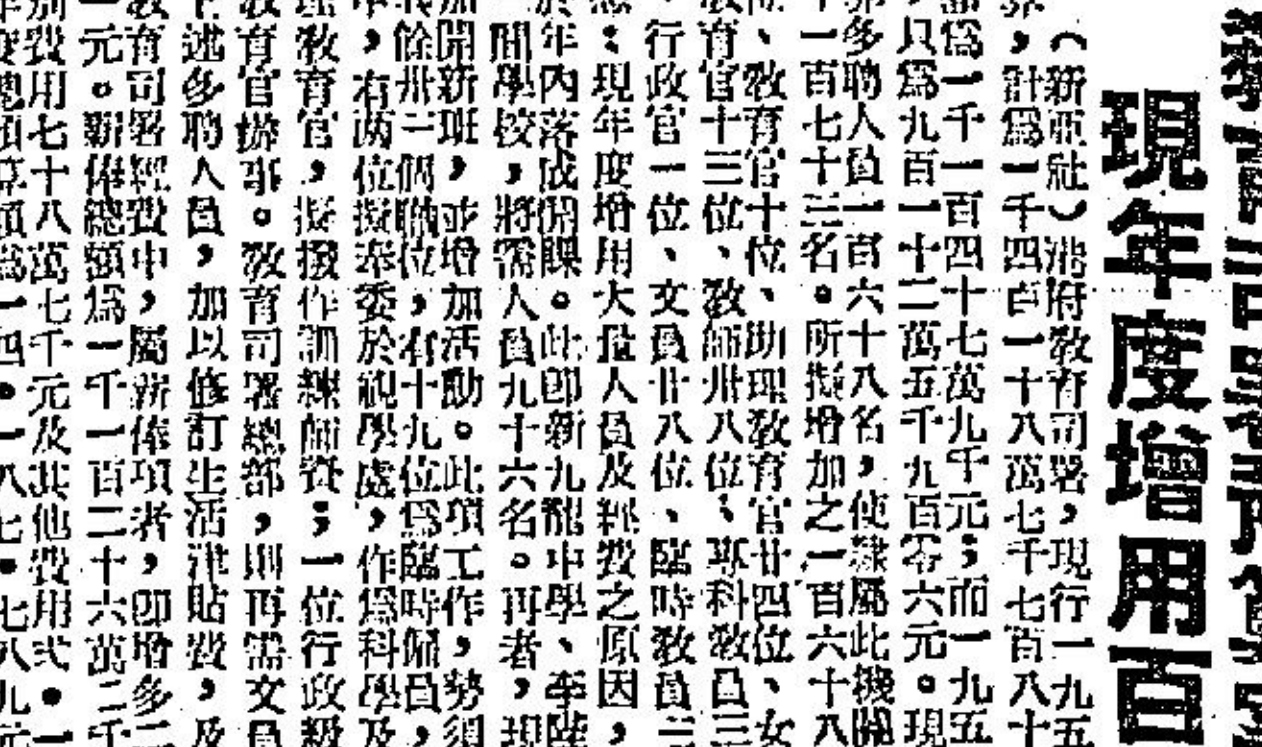 現年度增用百
（新亞社）港府教育司署，現行一九五
，計爲一千四百一十八萬七千七百八十
爲一千一百四十七萬九千元；而一九五
只爲九百一十二萬五千九百零六元。現
多聘人員一百六十八名，使隸屬此機關
一百七十三名。所擬增加之一百六十八
、教育官十位、助理教育官廿四位、女
育官十三位、教師卅八位、專科教員三
行政官一位、文員廿八位、臨時教員二
：現年度增用大量人員及經費之原因，
年內落成開課。此即新九龍中學、
間學校，將需人員九十六名。再者，現
開新班，並增加活動。此項工作，勢須
餘卅二個職位，有十九位爲臨時僱員，
，有兩位擬奉委於視學處，作爲科學及
教育官，擬撥作訓練師資；一位行政級
育官辦事。教育司署總部，則再需文員
述多聘人員，加以修訂生活津貼費，及
育司署經費中，屬薪俸項者，卽增多二
一元。新俸總額爲一千一百二十六萬二千
費用七十八萬七千元及其他費用式•一
總預算額爲一四•一八七•七八九元